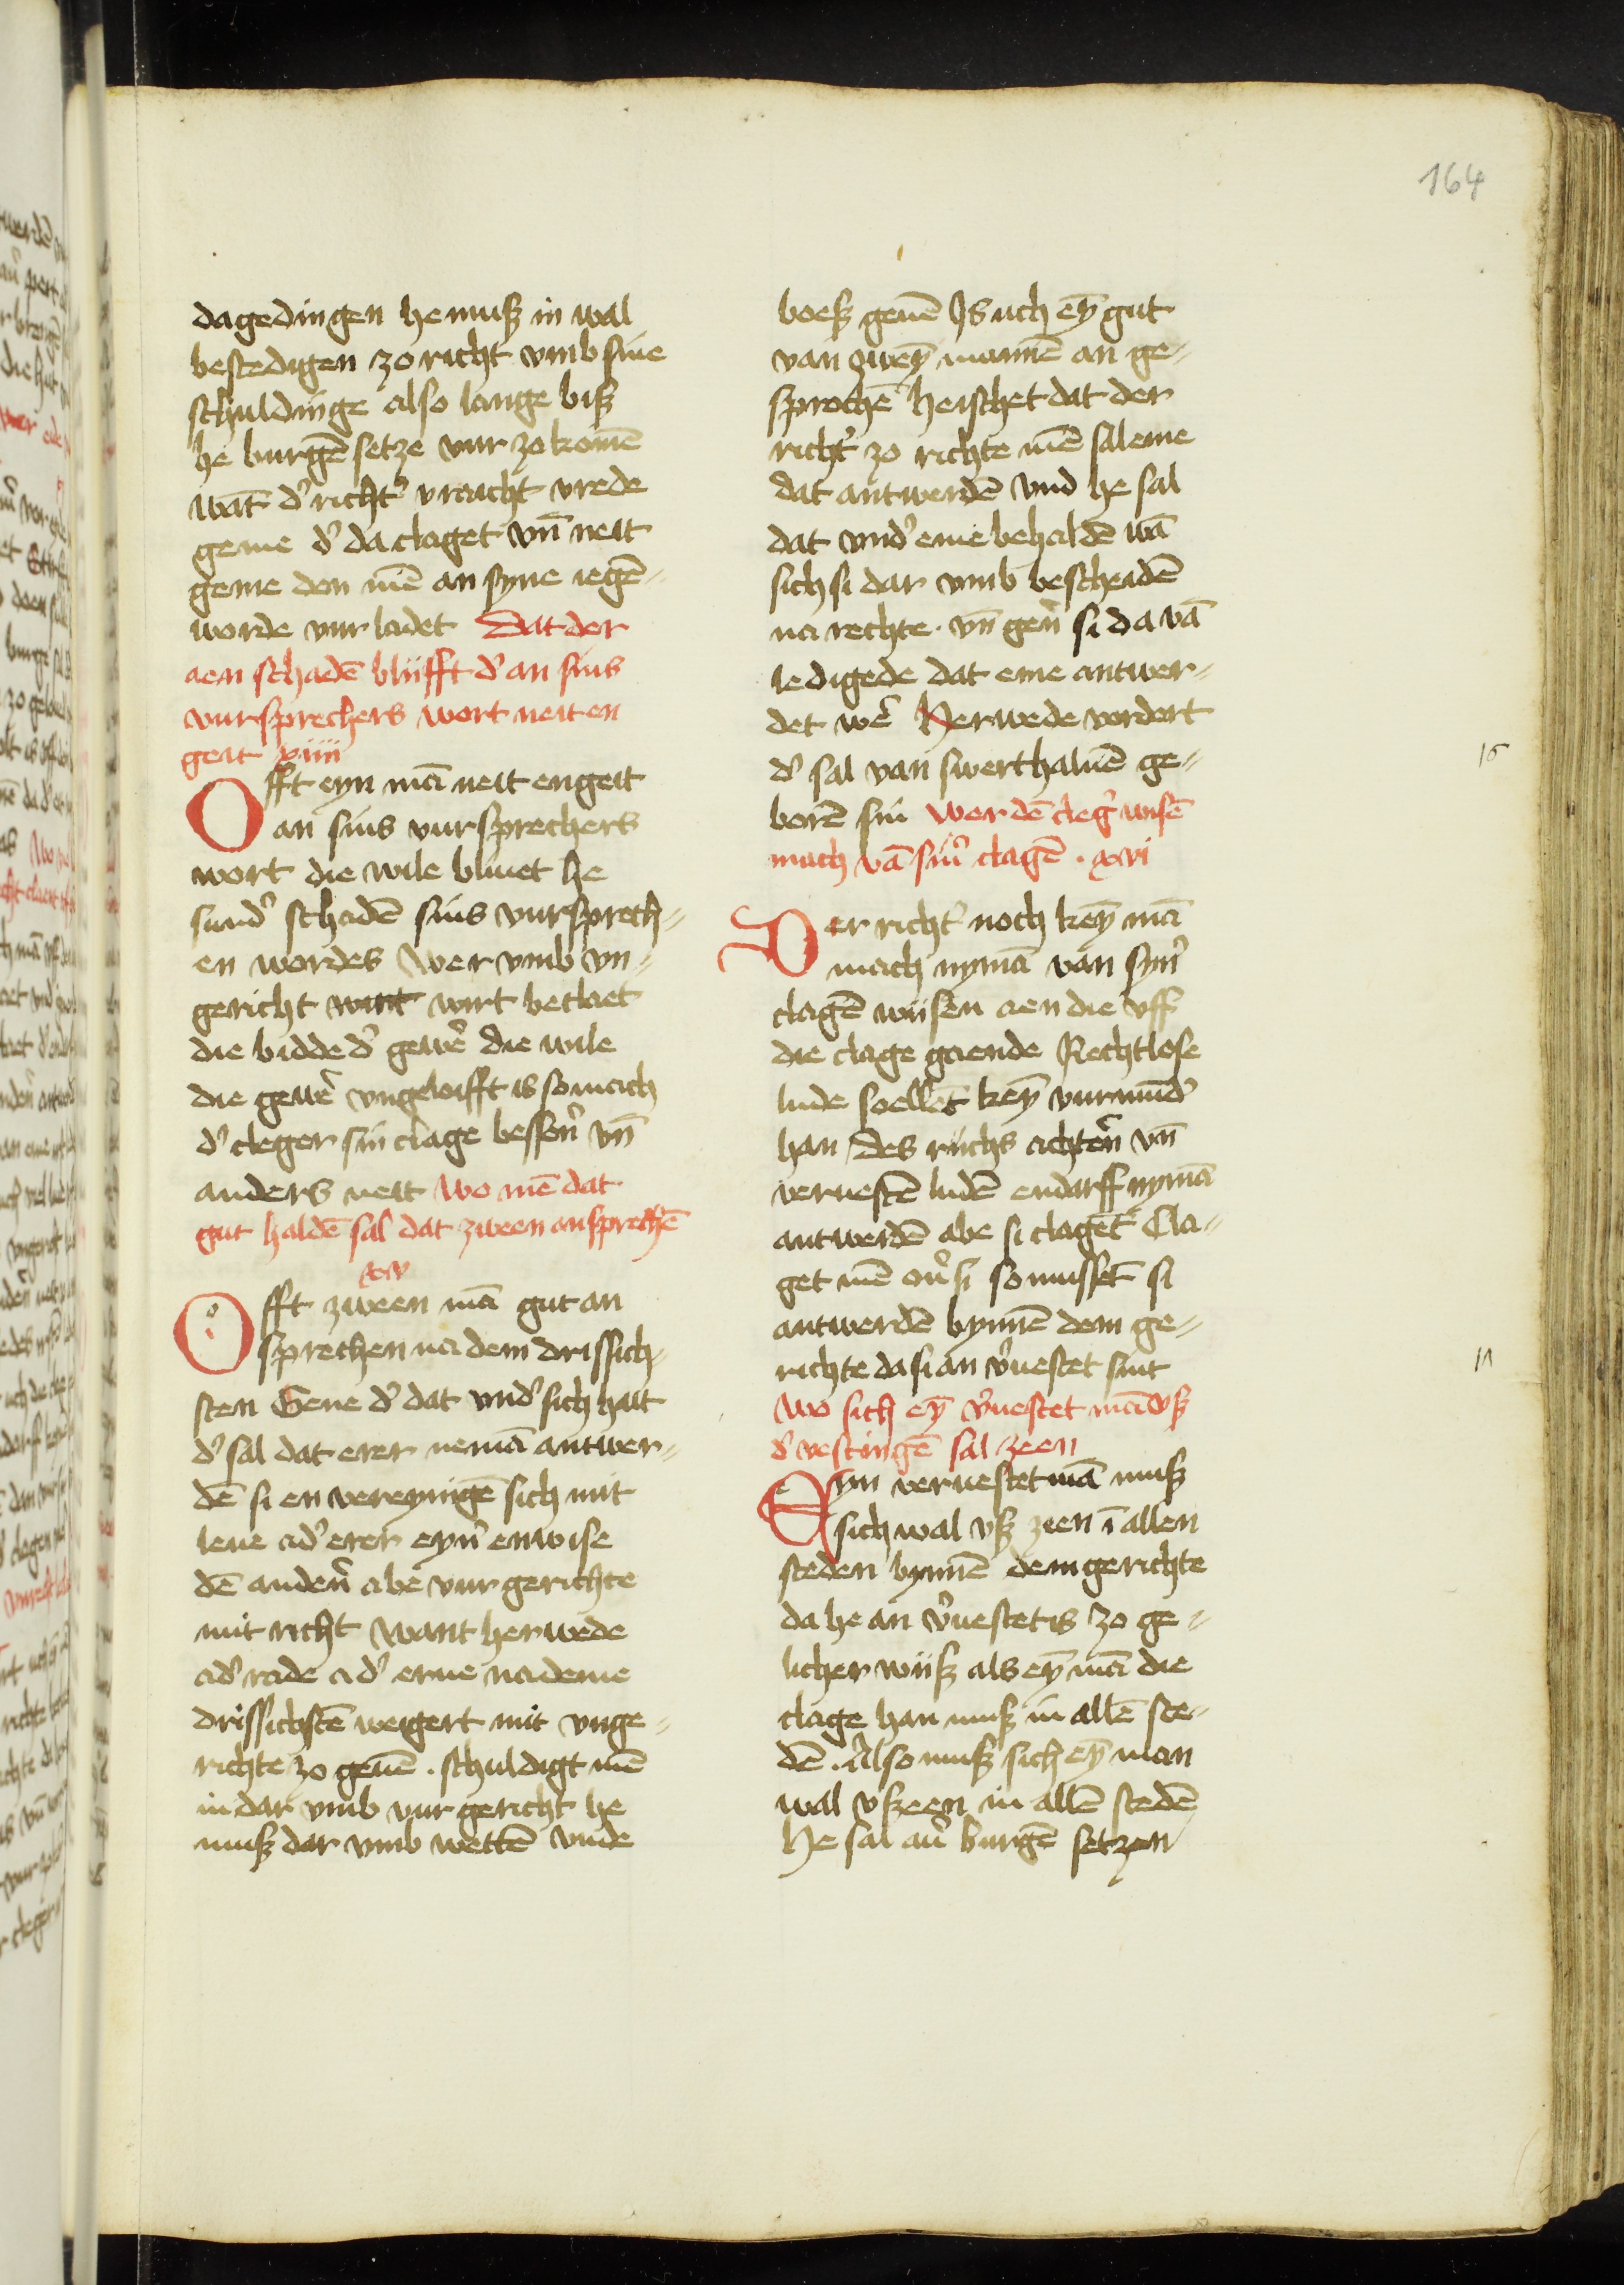 164
dagedingen he muß in wal
bestedigen zo richt vmb sine
schuldinge also lange biß
he burgē setze vur zo komē
wāt d' richt' vraicht vrede
geme d' da claget vn̄ neit
geme den mē an syne iegē⸗
worde vur ladet Dat der
aen schadē bliifft d' an sins
vursprechers wort neit en
geit xiiii
Offt eyn mā neit engeit
an sins vursprechers
wort die wile bliuet he
sund' schadē sins vursprech⸗
en wordes Wer vmb vn⸗
gericht want wirt beclaet
die bidde d' gew'e die wile
die gew'e vngeloifft is so mach
d' cleger sin clage bessen' vn̄
anders neit Wo mē dat
gut haldē sal dat zween ansprechē
xv
Offt zween mā gut an
sprechen na dem drissich⸗
sten Gene d' dat vnd' sich hait
d' sal dat erer nemā antwer⸗
dē si en vereynigē sich mit
leue ad' erer eyn' enwise
dē anden' abe vur gerichte
mit richt Want herwede
ad' rade ad' erue na deme
drissichstē weigert mit vnge⸗
richte zo geuē . schuldigt mē
in dar vmb vur gericht he
muß dar vmb wettē vnde
boeß geuē Is uch ey̅ gut
van zwey̅ mannē an ge⸗
sprochē heischet dat der
richt' zo richte mē sal eme
dat antwerdē vnd he sal
dat vnd' eme behaldē wā
sich si dar vmb bescheidē
na rechte . vn̄ gen' si da vā
ledigede dat eme antwer⸗
det w'e Herwede vordert
d' sal van swerthaluē ge⸗
borē sin Wer dē cleg' wisē
mach vā sin' clagē . xvi
Der richt' noch key̅ mā
mach nymā van syn'
clagē wiisen aen die vff
die clage gaende Rechtlose
lude soellēt key̅ vurmūd'
han Des riichs achten' vn̄
veruestē ludē endarff nymā
antwerdē abe si clagēt Cla⸗
get mē ou' si so mussēt si
antwerdē bynnē dem ge⸗
richte da si an v'uestet sint
Wo sich ey̅ v'uestet mā vß
d' vestingē sal zeen
Eyn veruestet mā muß
sich wal vß zien ī allen
steden bynnē dem gerichte
da he an v'uestet is zo ge⸗
licher wiiß als ey̅ mā die
clage han muß in allē ste⸗
dē . Also muß sich ey̅ man
wal vßzeen in allē stedē
He sal au' burgē setzen
16
17